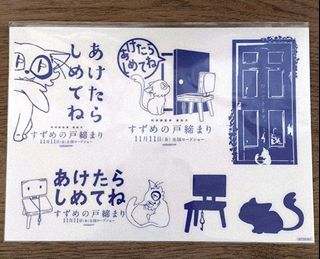 あけたら
しめてね
すずめの戸締まり
11月11日(金)全国ロードショー
あけたら
しめてね
すずめの戸締まり
11月11日(金)全国ロードショー
あけたら
しめてね
すずめの戸締まり
11月11日(金)全国ロードショー